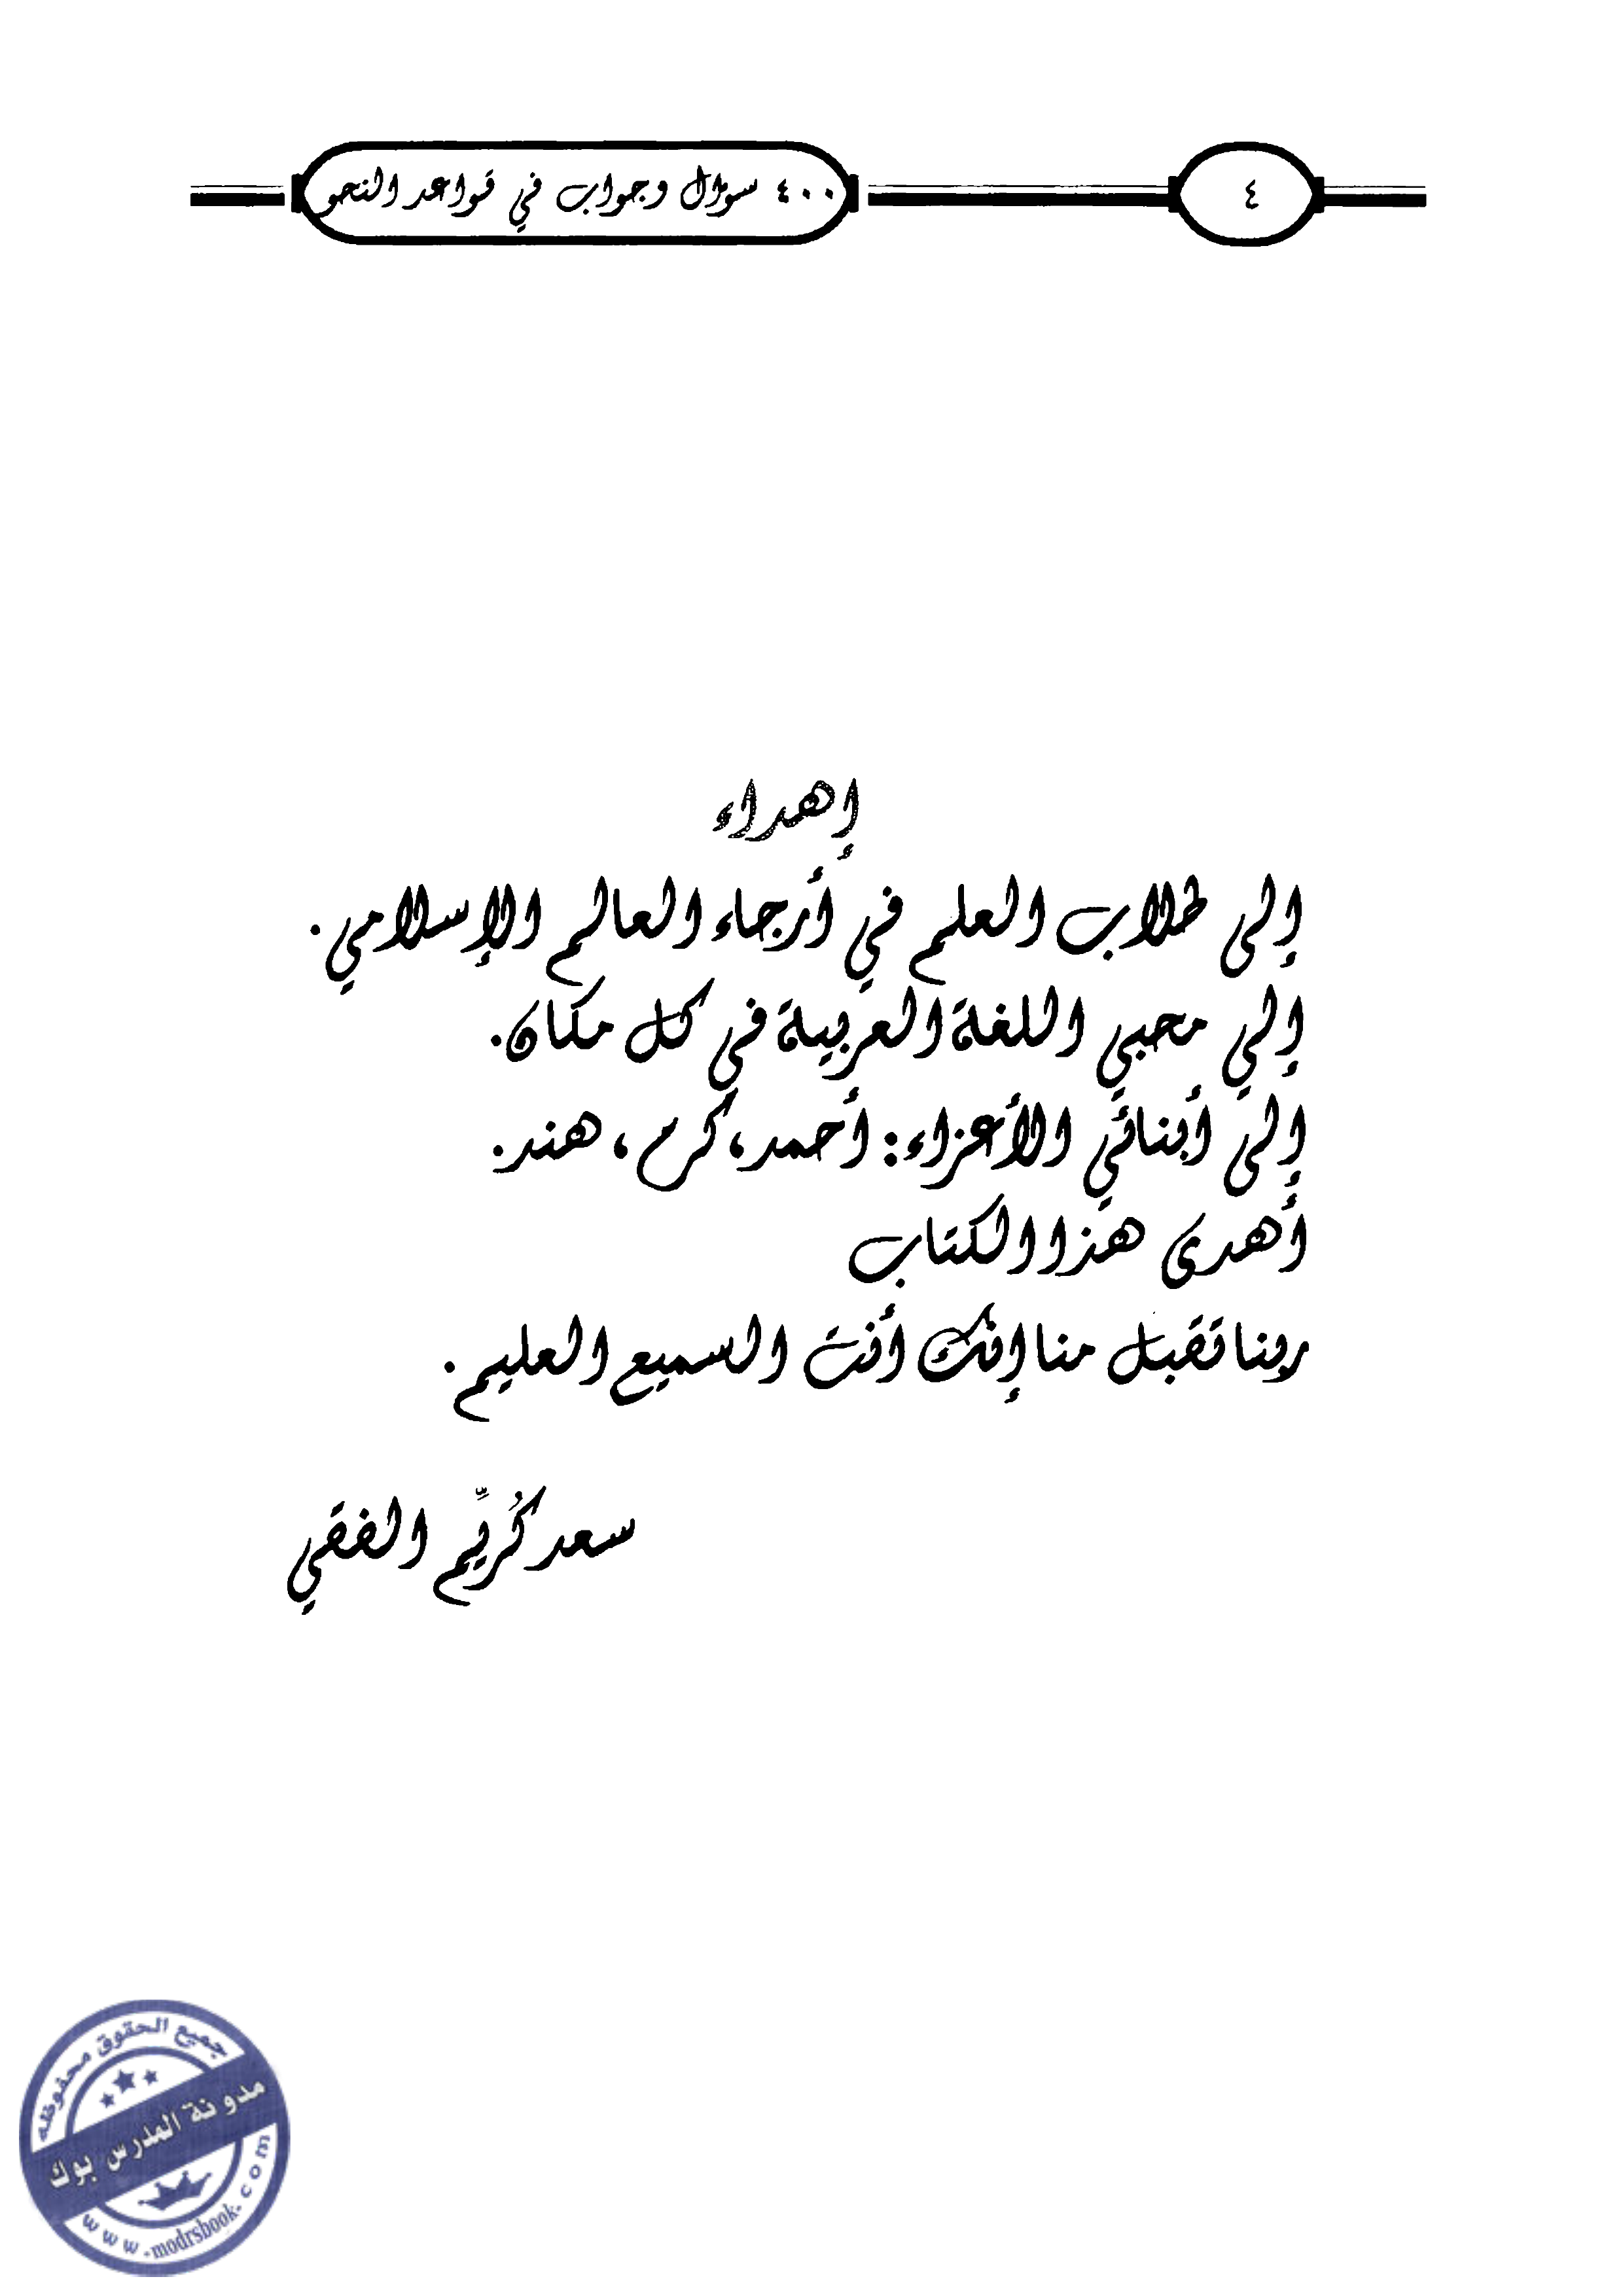 ٤
٤٠٠ سؤال وجواب في قواعد النحو
إهداء
إلى طلاب العلم في أرجاء العالم الإسلامي.
إلي محبي اللغة العربية في كل مكان.
إلى أبنائي الأعزاء: أحمد، كرم، هند.
أهدى هذا الكتاب
ربنا تقبل منا إنك أنت السميع العليم.
سعد كُريِّم الفقي
جميع الحقوق محفوظه
مدونة المدرس بوك
www.modrsbook.com